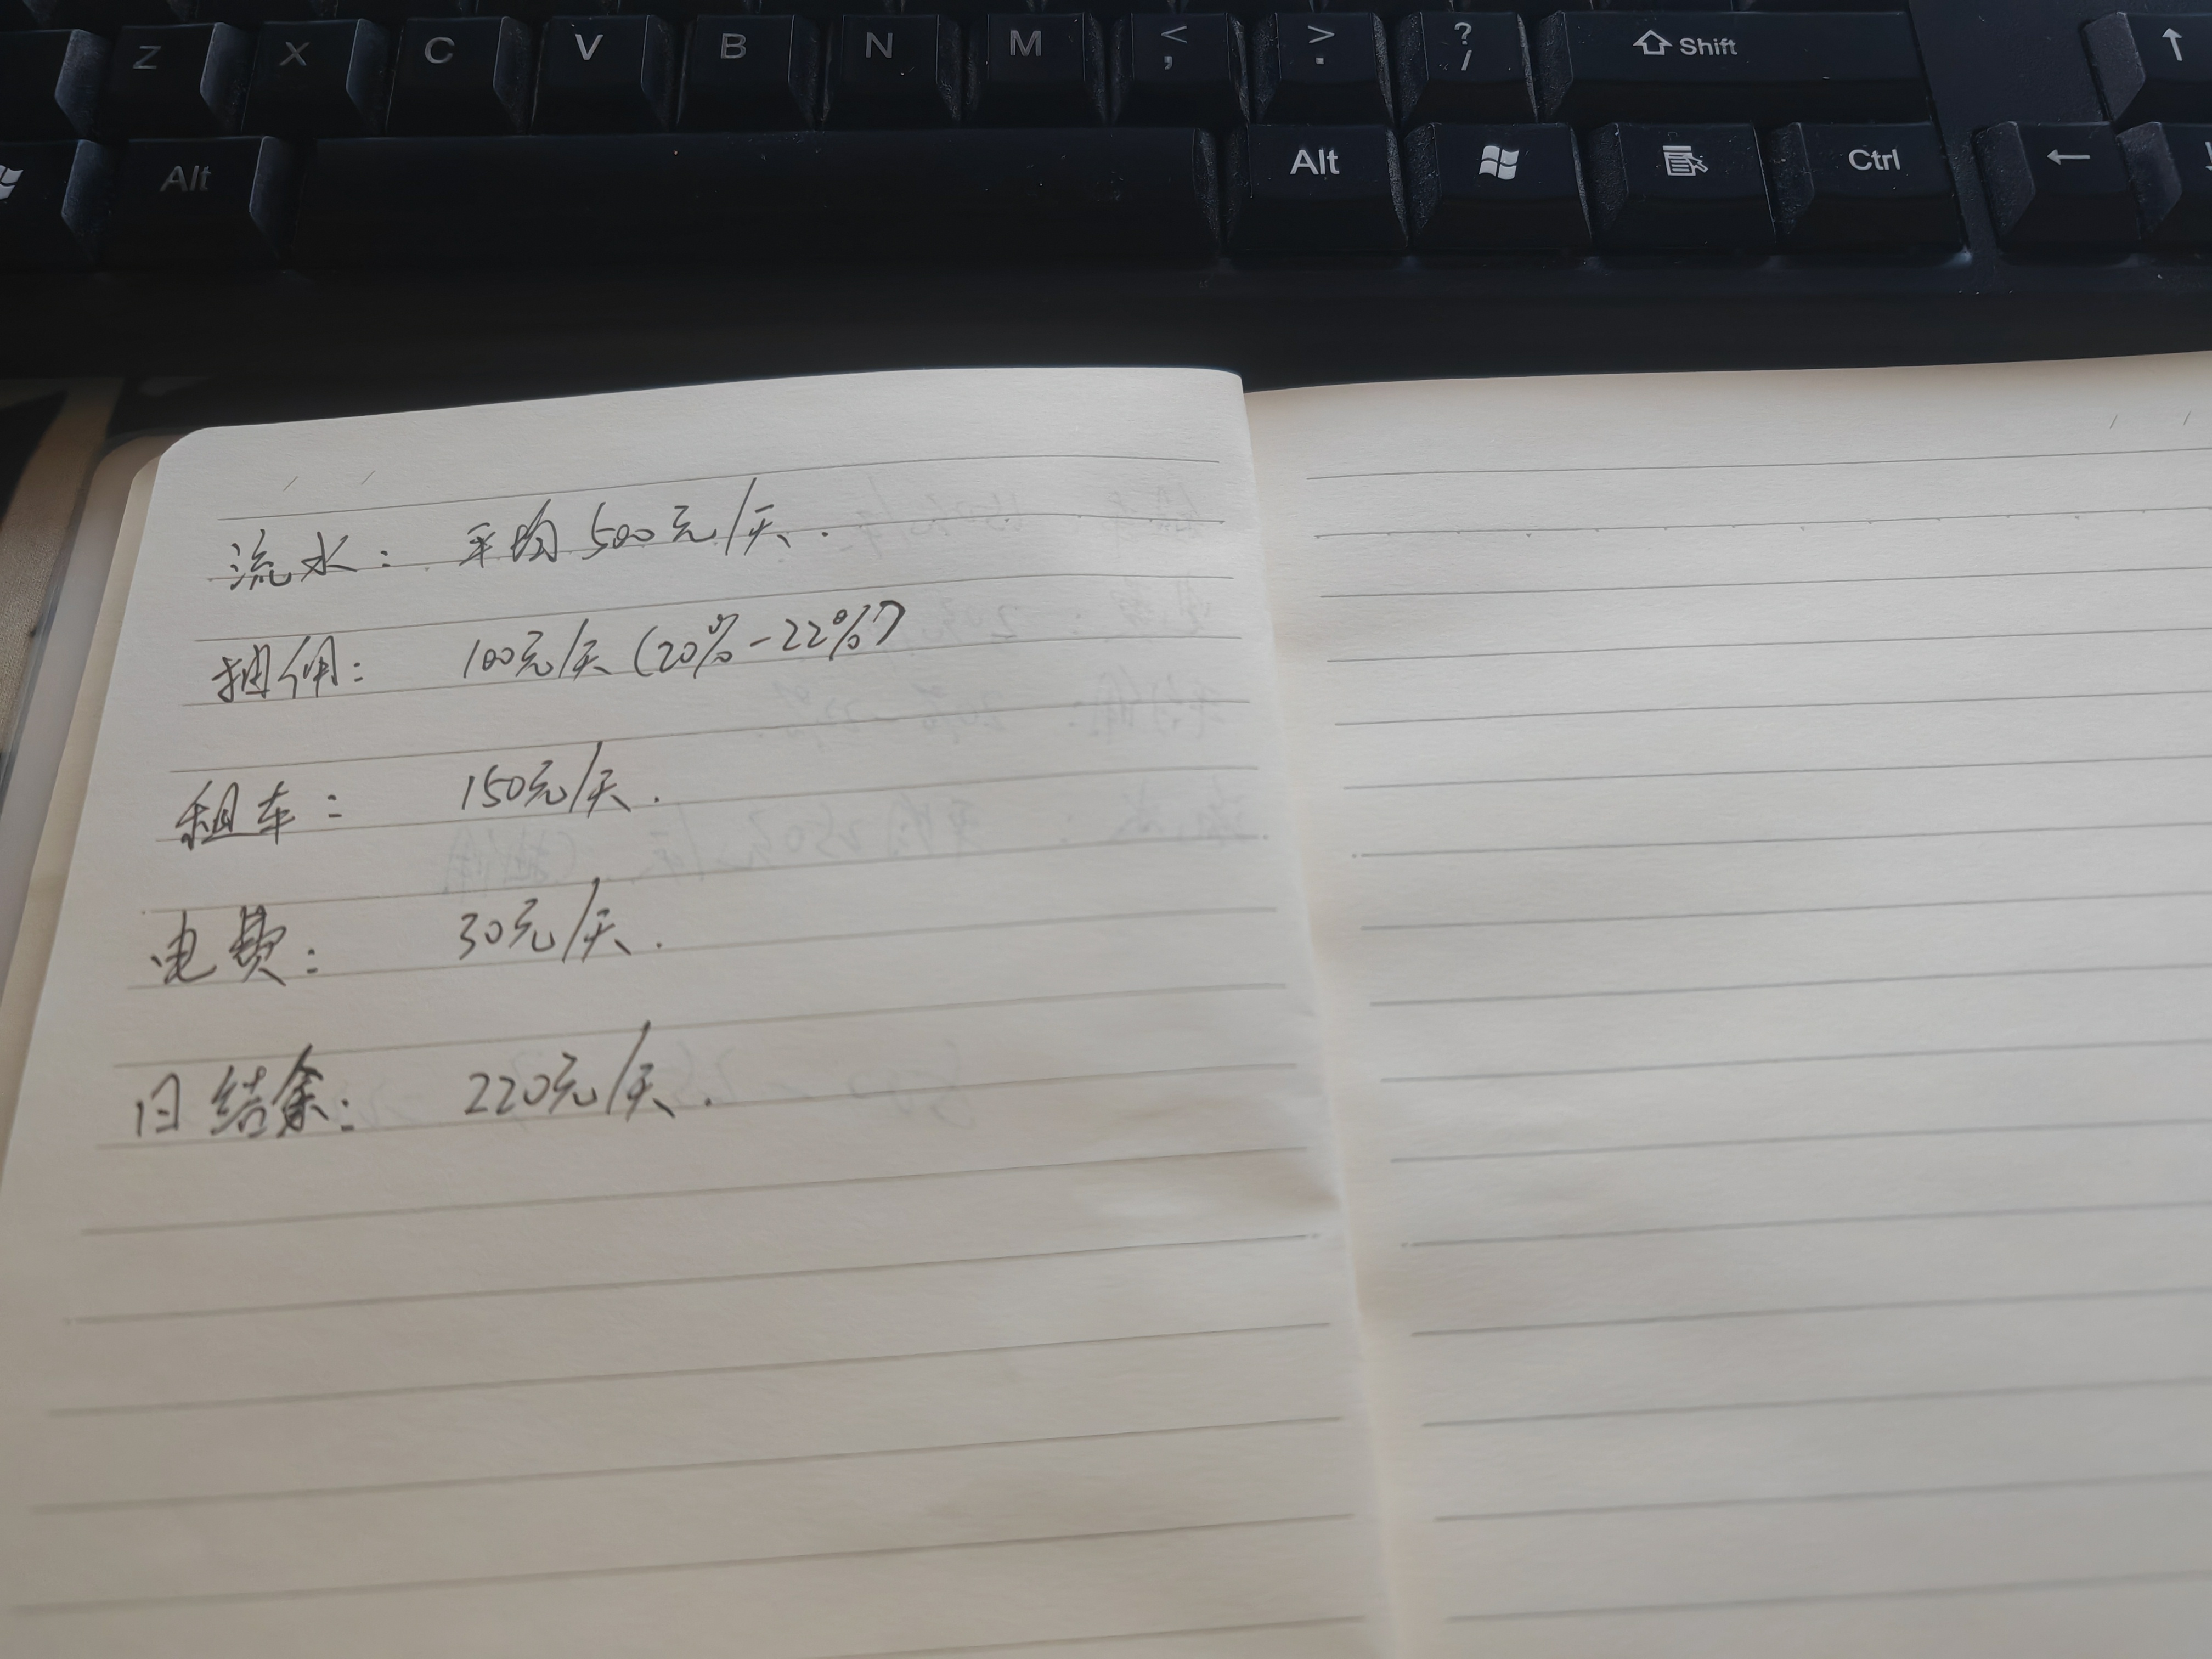 Z X C V B N M < , > . ? / Shift
Alt Alt Ctrl
流水: 平均500元/天.
抽佣: 100元/天(20%-22%)
租车: 150元/天.
电费: 30元/天.
日结余: 220元/天.